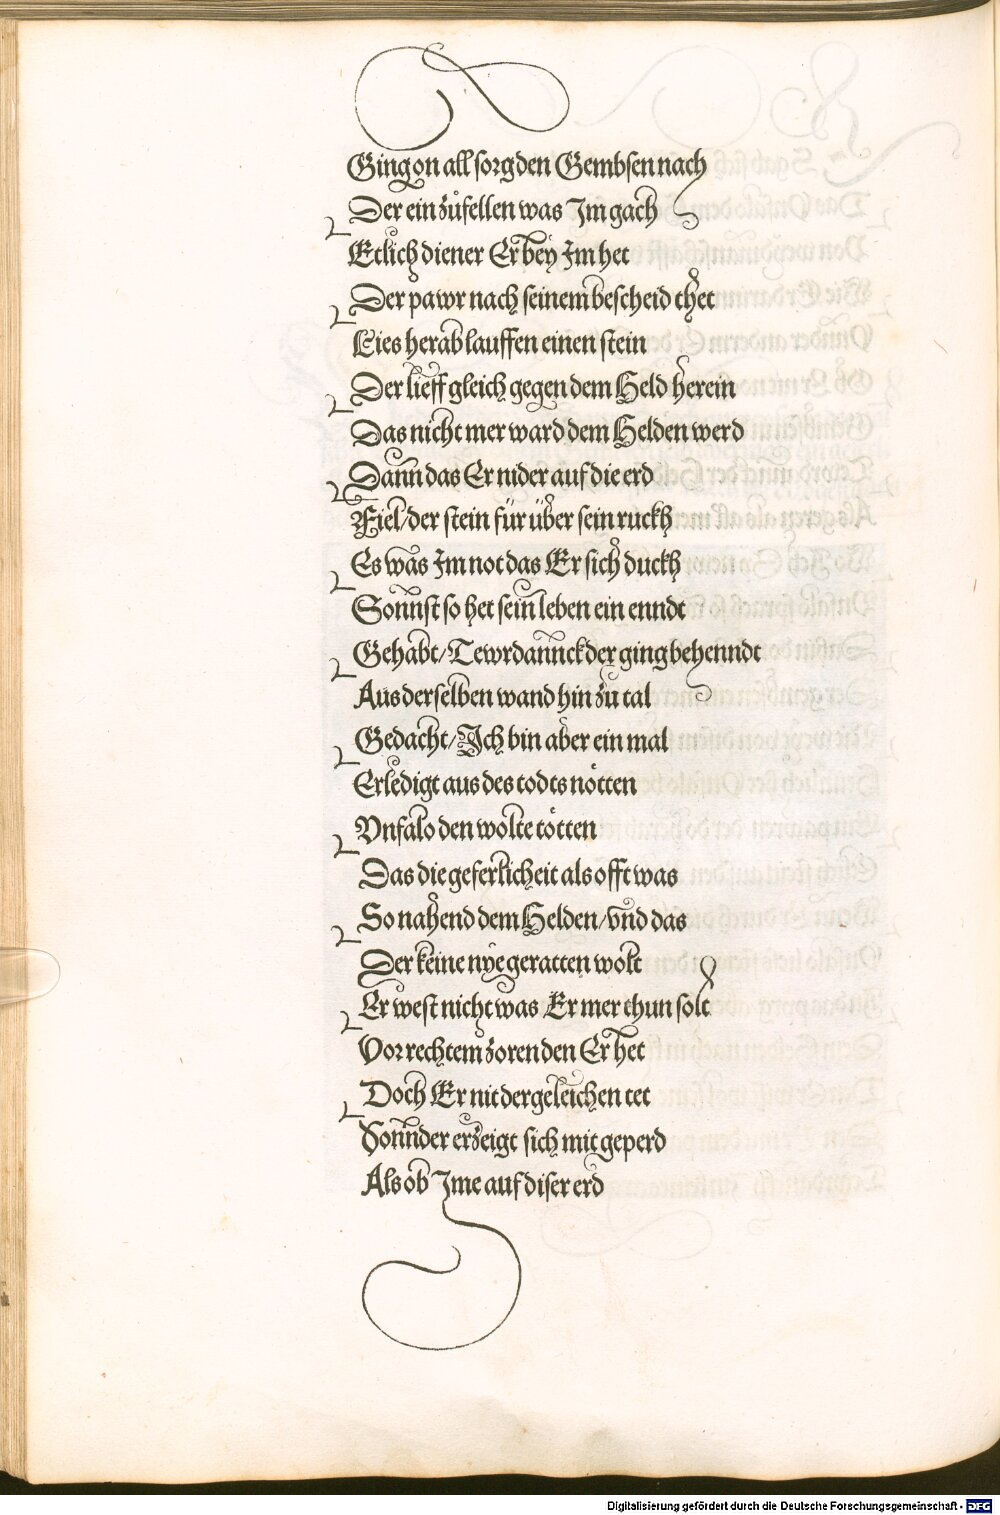 Ging on all sorg den Gembsen nach
Der ein zůfellen was Im gach
Etlich diener Er bey Im het
Der pawr nach seinem bescheid thet
Lies herab lauffen einen stein
Der lieff gleich gegen dem Held herein
Das nicht mer ward dem Helden werd
Dann das Er nider auf die erd
Fiel/ der stein für über sein ruckh
Es was Im not das Er sich duckh
Sonnst so het sein leben ein enndt
Gehabt/ Tewrdannck der ging behenndt
Aus derselben wand hin zů tal
Gedacht/ Ich bin aber ein mal
Erledigt aus des todts nötten
Vnfalo den wolte tötten
Das die geferlicheit als offt was
So nahend dem Helden/ vnd das
Der keine nye geratten wolt
Er west nicht was Er mer thun solt
Vor rechtem zoren den Er het
Doch Er nit dergeleichen tet
Sonnder erzeigt sich mit geperd
Als ob Ime auf diser erd
Digitalisierung gefördert durch die Deutsche Forschungsgemeinschaft - DFG